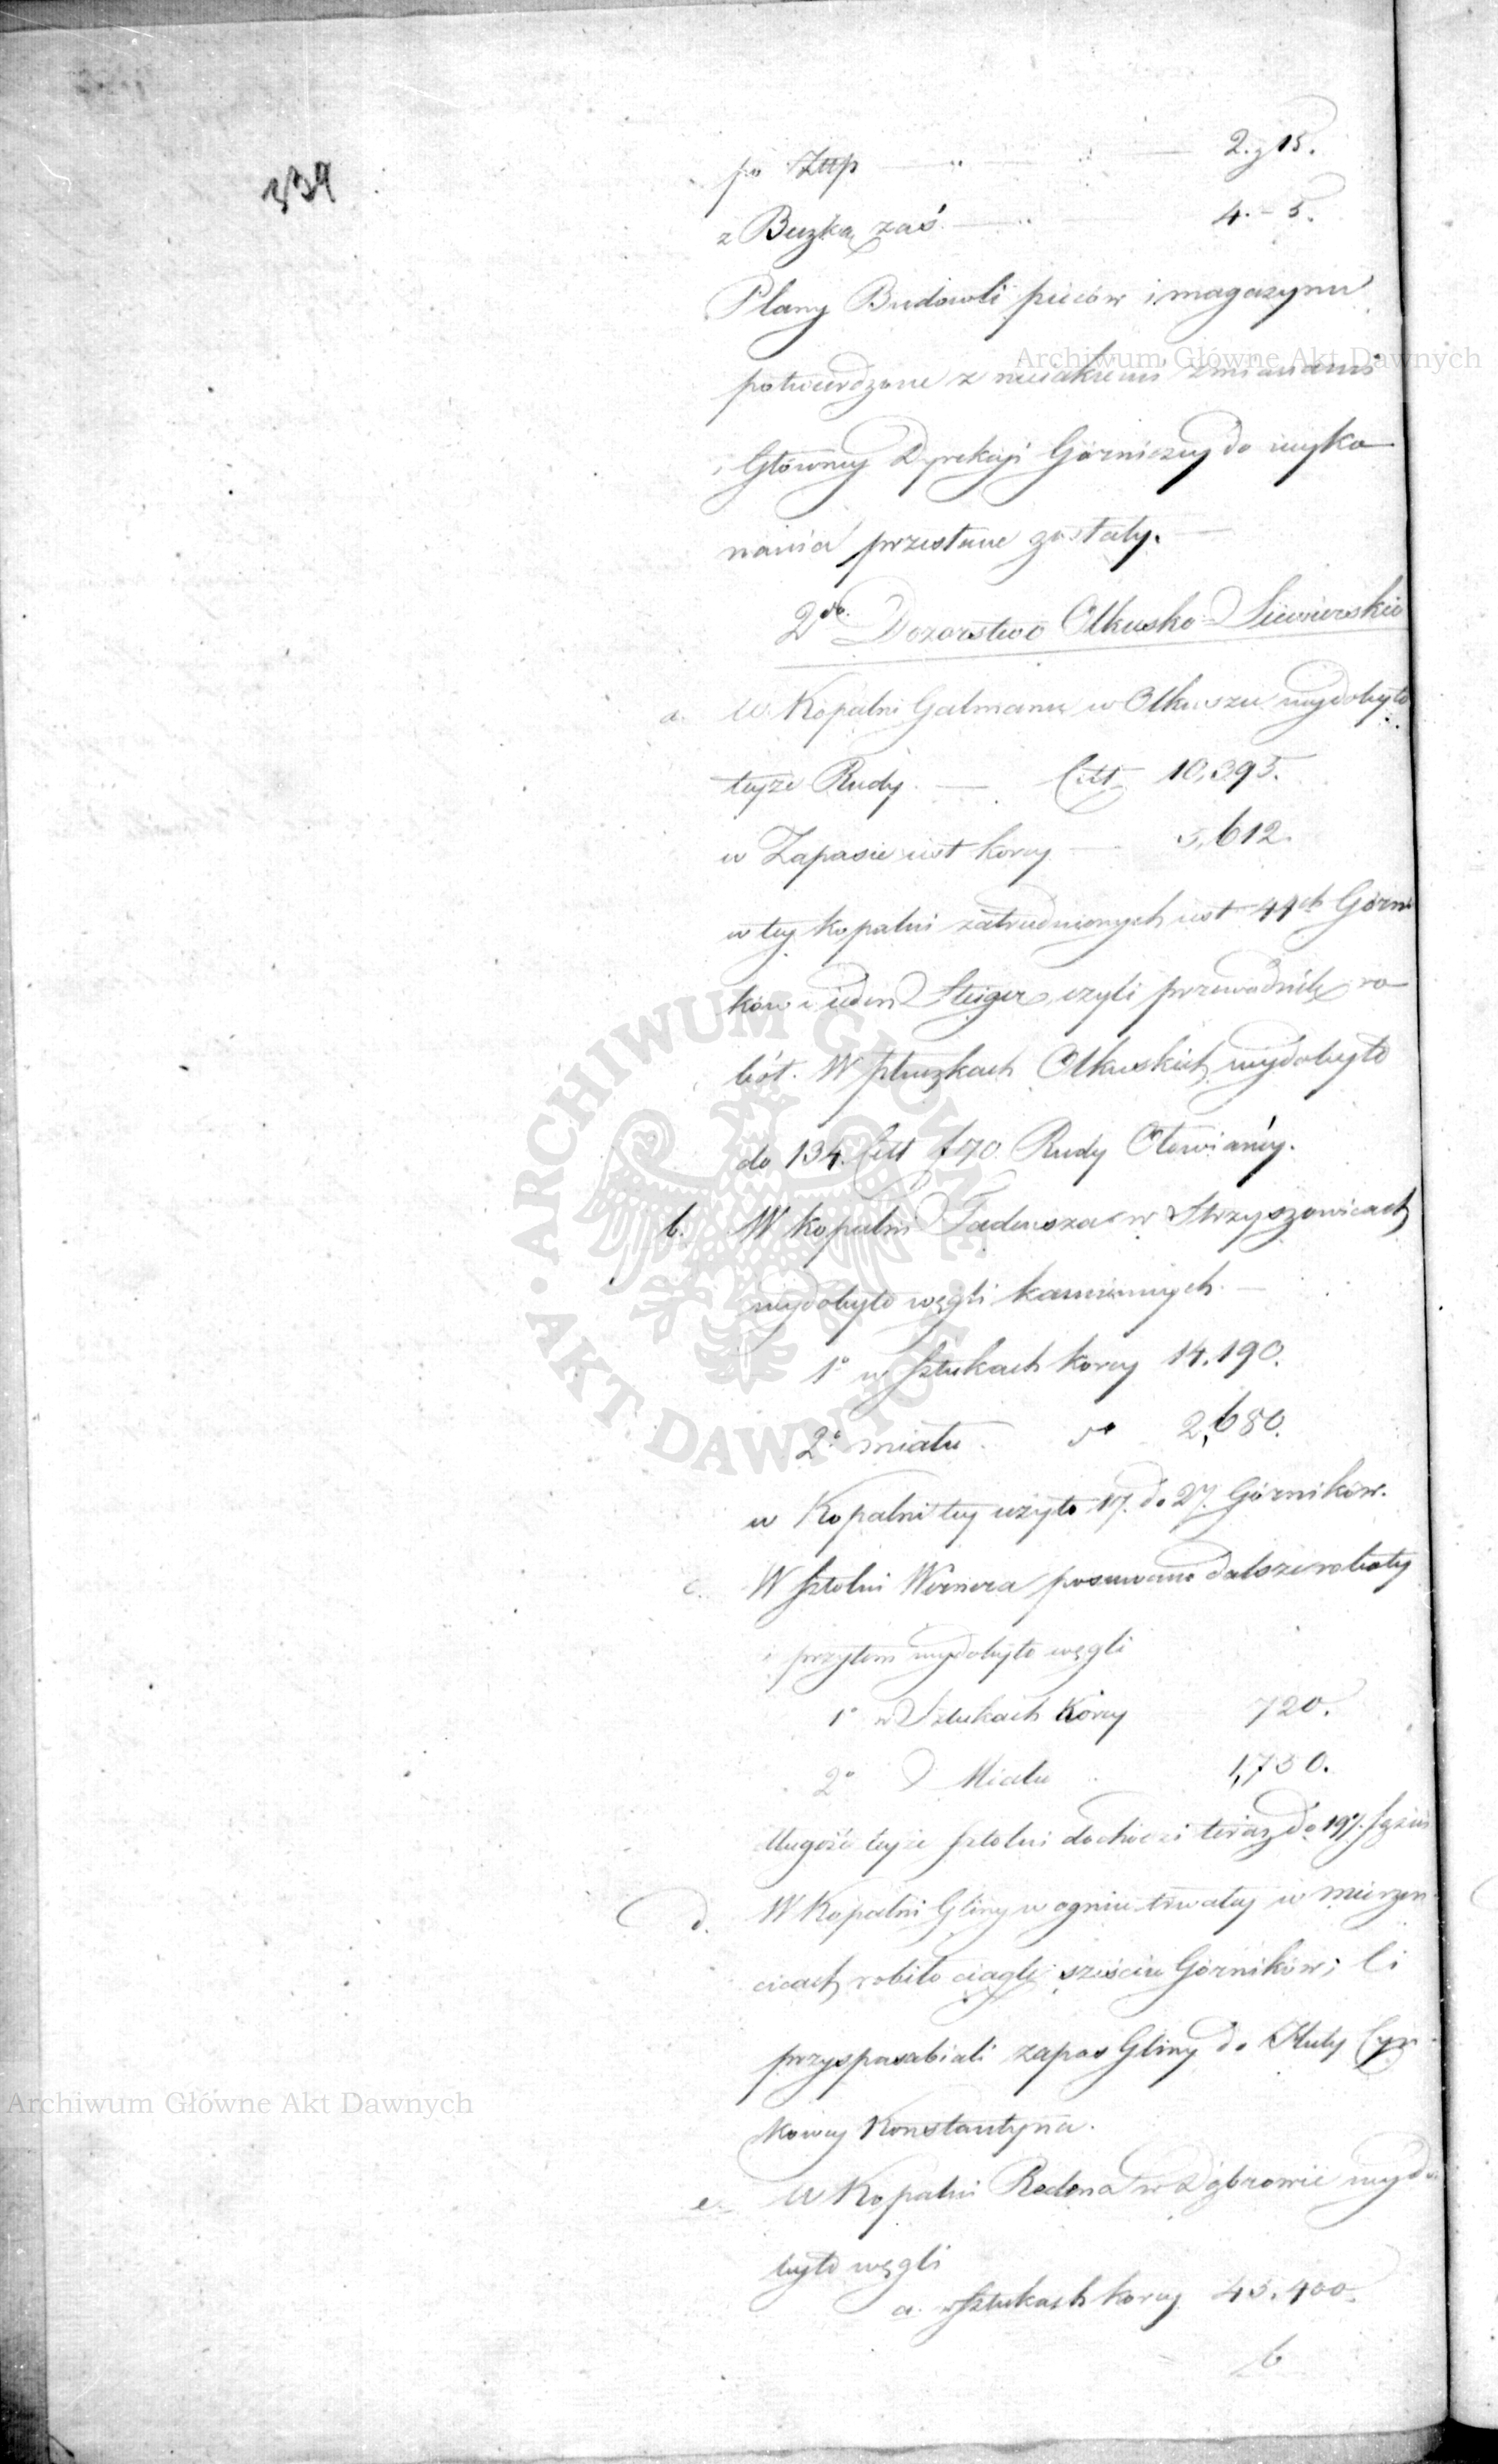 339
po Złłp — " — " — 2. g 15.
z Buzką zaś — " — 4. - 5.
Plany Budowli pieców i magazynu
Archiwum Główne Akt Dawnych
potwierdzone z nieiakiemi zmianami
Główney Dyrekcyi Górniczey do wyko
nania przesłane zostały. —
2do. Dozorstwo Olkusko Siewierskie
a. W Kopalni Galmanu w Olkuszu wydobyto
teyże Rudy. — Ctt. 10,395.
w Zapasie iest korcy — 5,612.
w tey kopalni zatrudnionych iest 44ch Górni
ków i ieden Steiger, czyli przewodnik ro
bót. W płuczkach Olkuskich wydobyto
do 134. Ctt f 70. Rudy Ołowianéy.
b. W kopalni Tadeusza w Strzyszowicach
wydobyto węgli kamiennych. —
1° w sztukach korcy 14.190.
2° miału do 2,680.
w Kopalni tey użyto 17. do 27. Górników.
c. W sztolni Wernera posuwano dalsze roboty
i przytem wydobyto węgli
1° w Sztukach Korcy 720.
2° Miału " 1,750.
długość teyże sztolni dochodzi teraz do 197.
d. W Kopalni Gliny w ogniu trwałey w Mierzen
cicach robiło ciągle sześciu Górników; Ci
przysposabiali zapas Gliny do Huty Cyn
kowey Konstantyna.
Archiwum Główne Akt Dawnych
e. W Kopalni Redena w Dąbrowie wydo
byto węgli
a. w sztukach korcy 45.400.
b
ARCHIWUM GŁÓWNE · AKT DAWNYCH ·